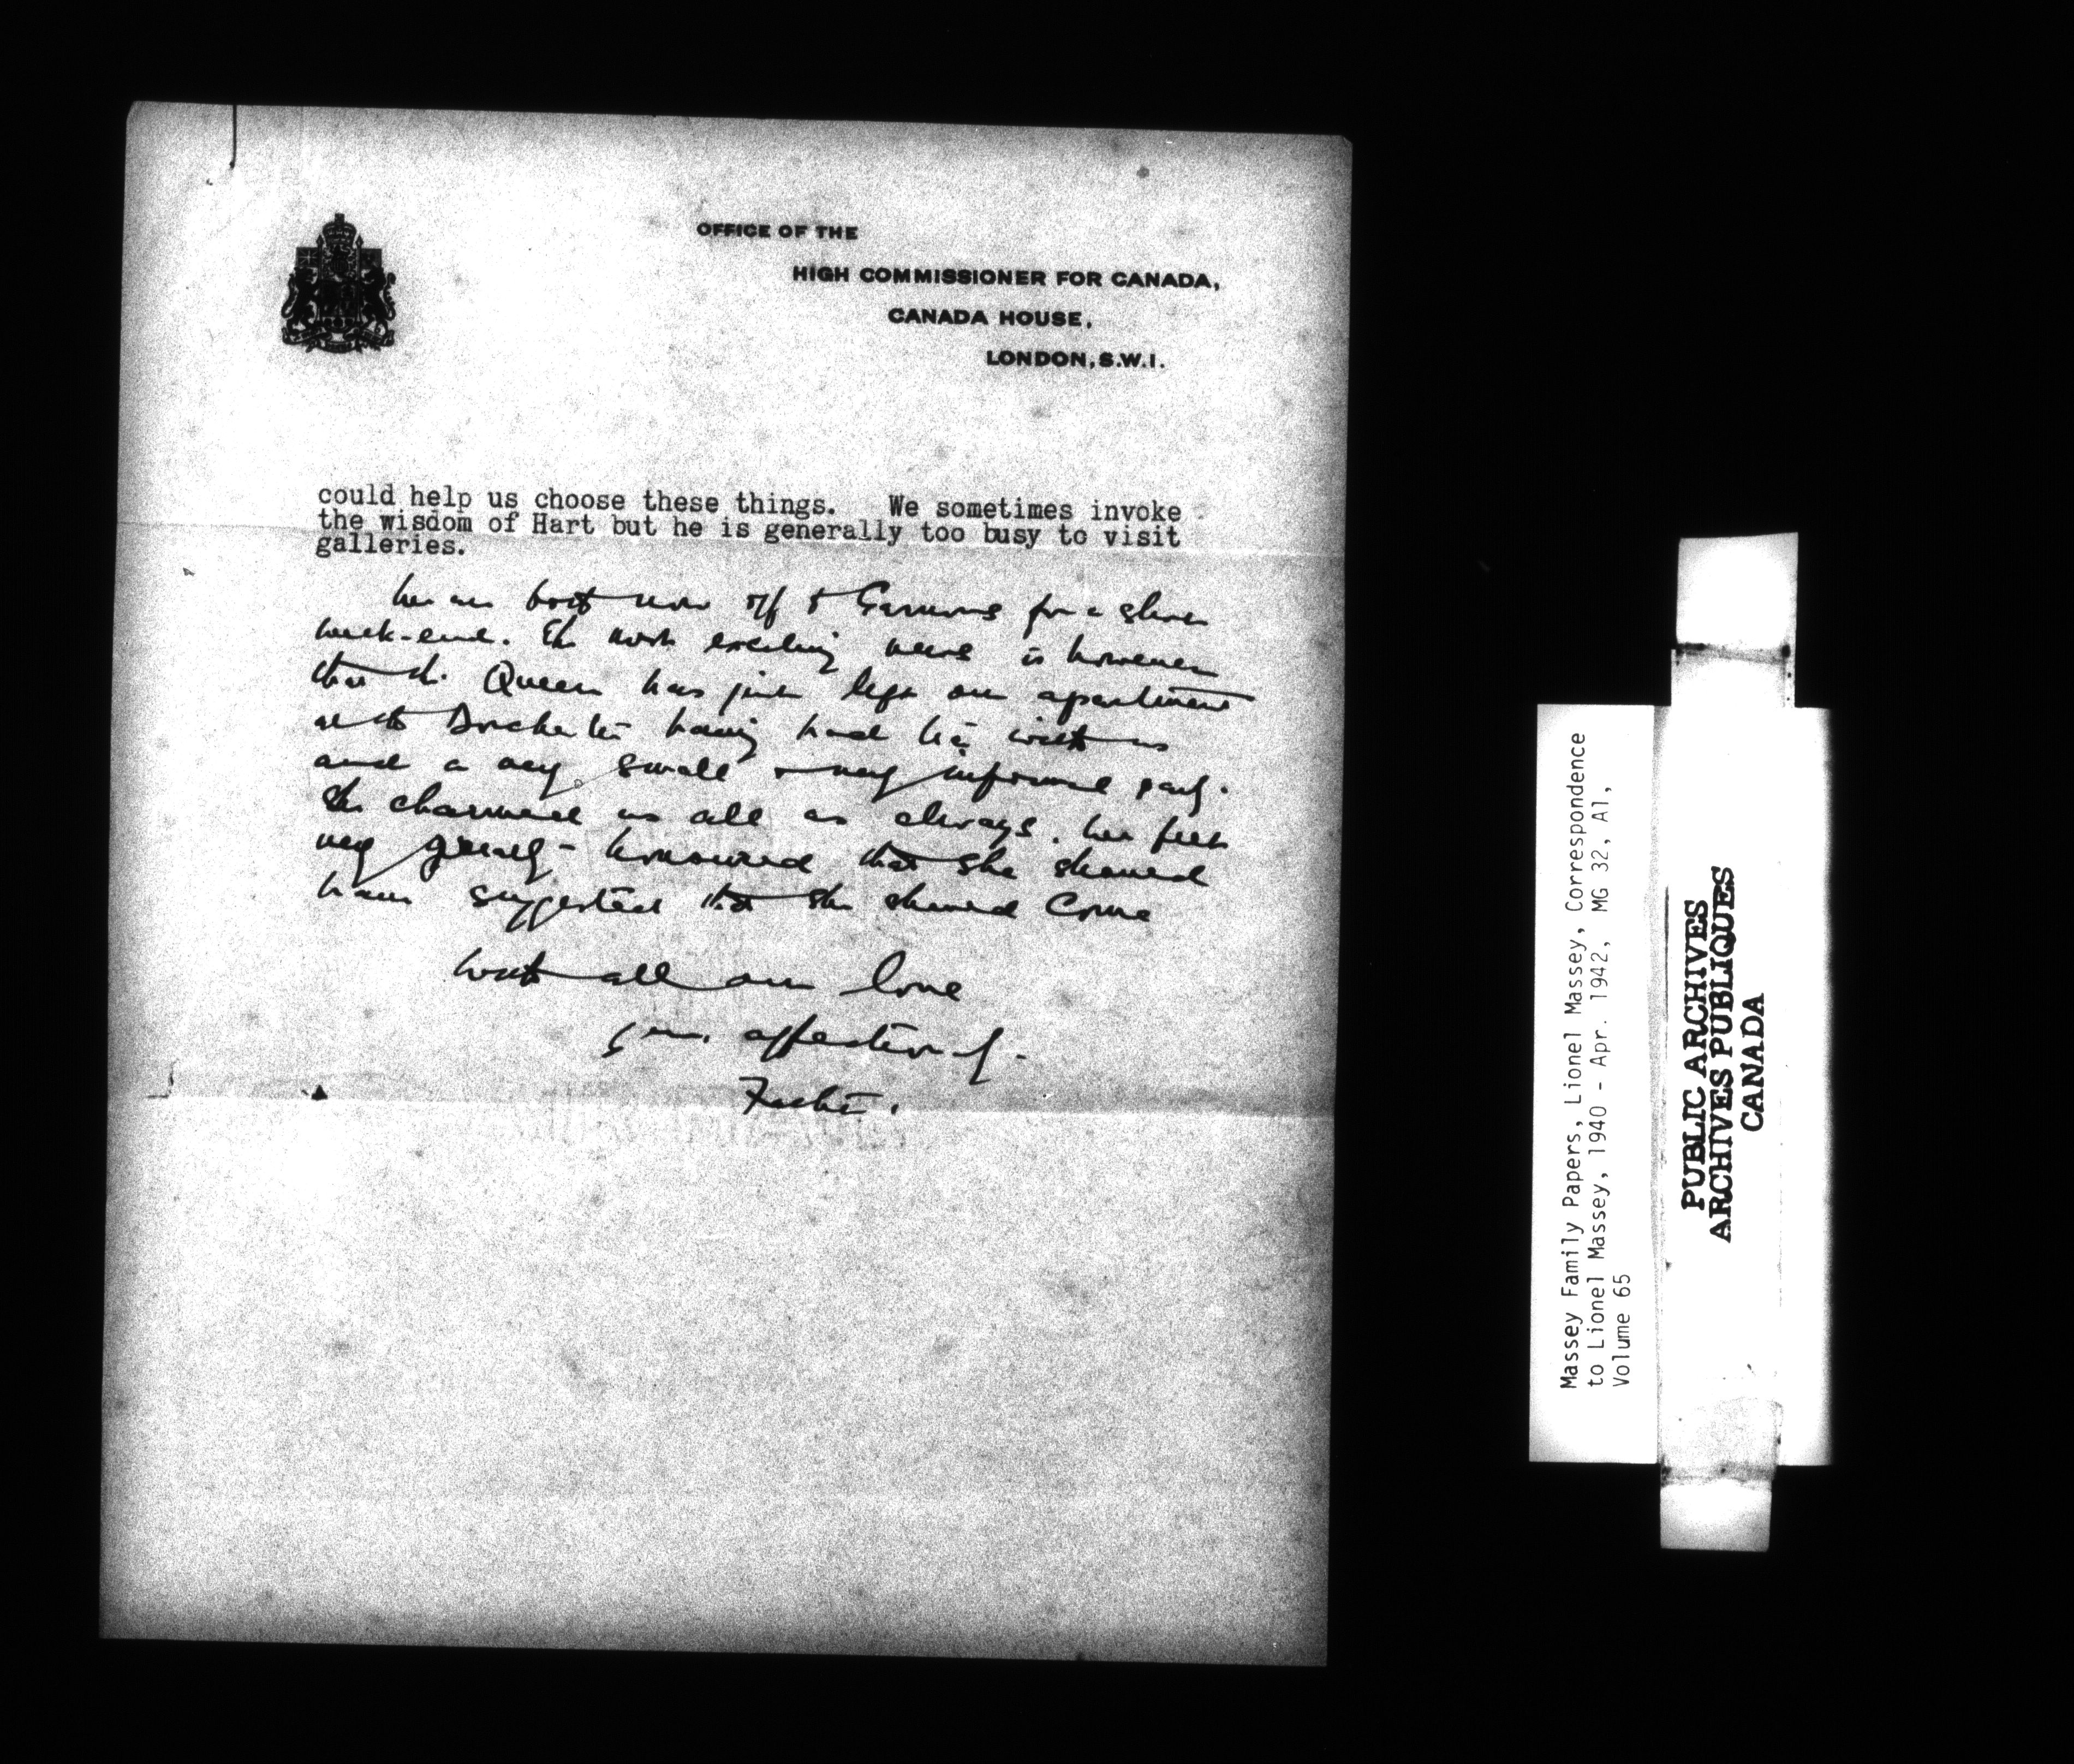 OFFICE OF THE
HIGH COMMISSIONER FOR CANADA,
CANADA HOUSE,
LONDON, S.W.1.
could help us choose these things. We sometimes invoke
the wisdom of Hart but he is generally too busy to visit
galleries.
We are both now off to Garnons for a short
week-end. The most exciting news is however
that the Queen has just left our apartment
at the Dorchester having had tea with us
and a very small & very informal party.
She charmed us all as always. We feel
very greatly honoured that she should
have suggested that she should come
With all our love
Your affectionate
Father.
Massey Family Papers, Lionel Massey, Correspondence
to Lionel Massey, 1940 - Apr. 1942, MG 32, A1,
Volume 65
PUBLIC ARCHIVES
ARCHIVES PUBLIQUES
CANADA